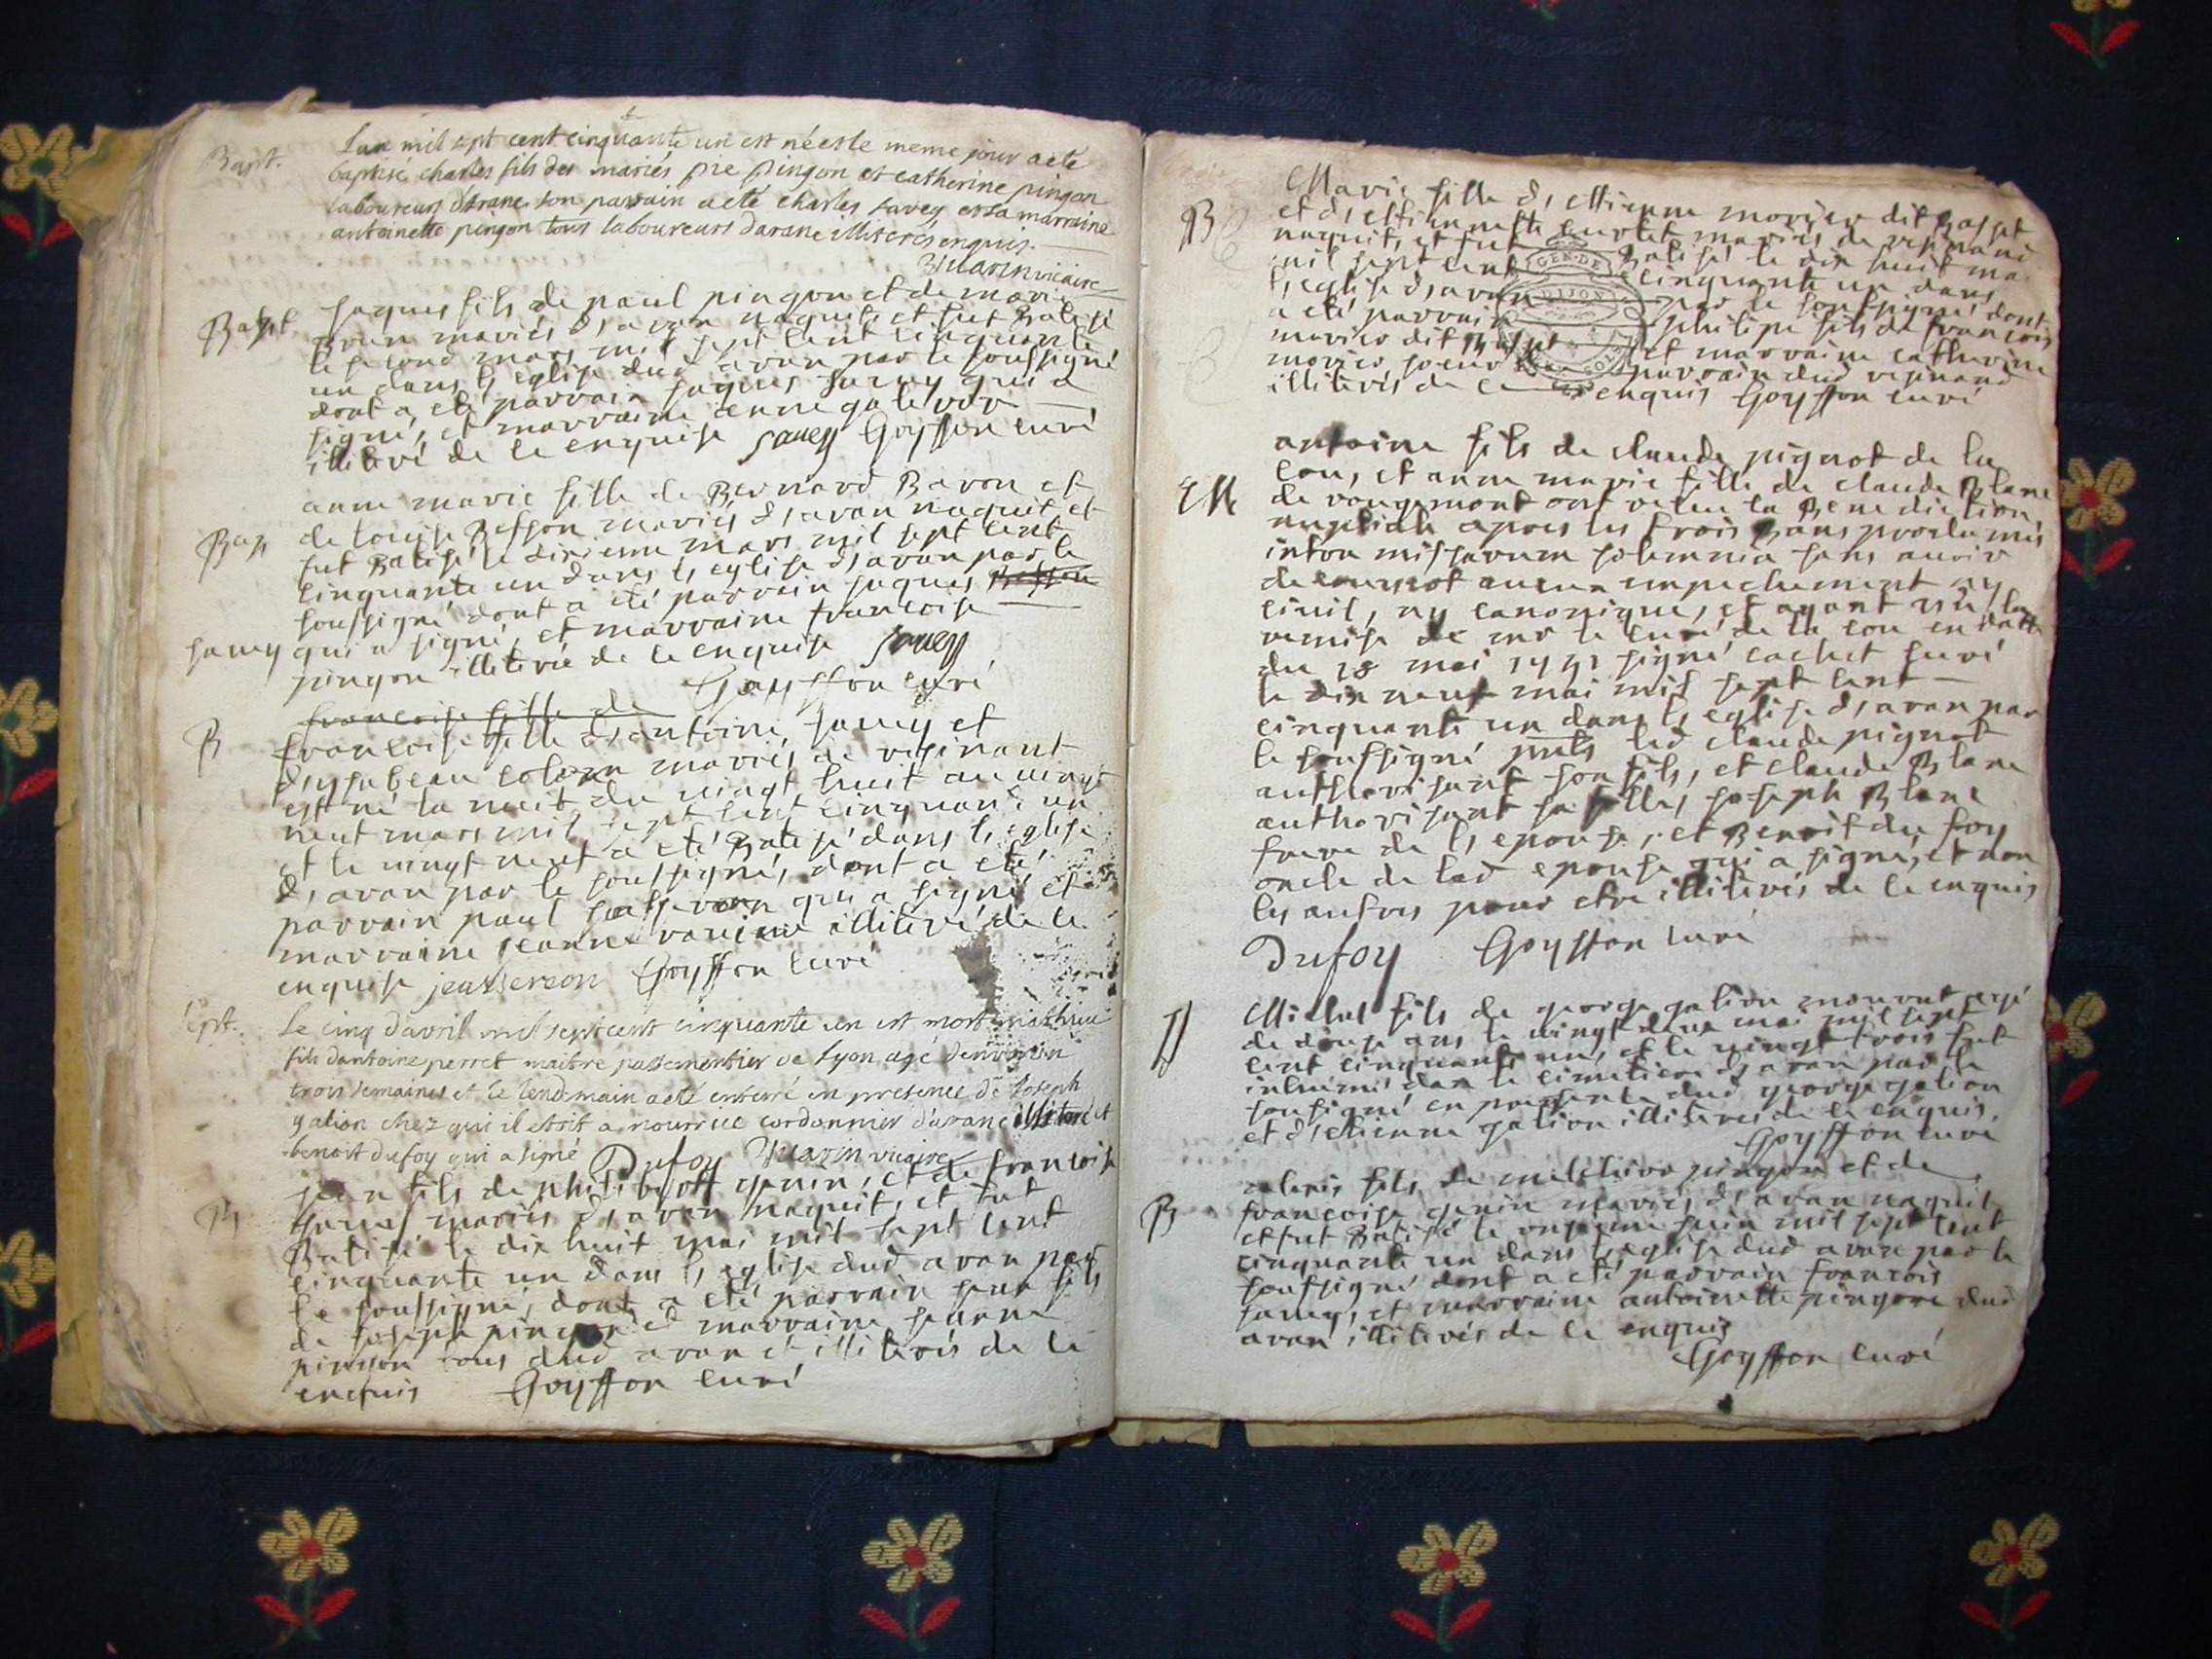 Bapt.
L'an mil sept cent cinquante un est né et le meme jour a eté
baptisé charles fils des mariés pre pingon et catherine pingon
laboureurs d'arane son parrain a eté charles savey et sa marraine
antoinette pingon tous laboureurs darane illiterés enquis.
vicaire
Bapt
jaques fils de paul pingon et de marie
mariés d'aran naquit, et fut Batisé
le second mars mil sept cent cinquante
un dans l'eglise dud aran par le soussigné
dont a eté parrain jaques savey qui a
signé, et marraine anne
illiteré de ce enquise savey Goyffon curé
Bap
anne marie fille de Bernard Baron et
de louise Besson mariés d'aran naquit et
fut Batisé le dixieme mars mil sept cent
cinquante un dans l'eglise d'aran par le
soussigné dont a eté parrain jaques Besson
savey qui a signé, et marraine francoise
pingon illiterée de ce enquise savey
Goyffon curé
francoise fille de
B
francoise fille d'antoine savey et
d'ysabeau mariés de resinant
est né la nuit du vingt huit au vingt
neuf mars mil sept cent cinquante un
et le vingt neuf a eté Batisé dans l'eglise
d'aran par le soussigné, dont a eté
parrain paul qui a signé et
marraine jeanne illiteré de ce
enquise Goyffon curé
Sept.
Le cinq d'avril mil sept cent cinquante un est mort mathieu
fils d'antoine perret maitre passementier de Lyon agé d'environ
trois semaines et le lendemain a eté enterré en presence de Joseph
galion chez qui il etoit a nourrice cordonnier d'arane illiteré et
benoit dufoy qui a signé Dufoy vicaire
B
jean fils de philibert genin, et de francoise
savey mariés d'aran naquit, et fut
Batisé le dix huit mai mil sept cent
cinquante un dans l'eglise dud aran par
le soussigné, dont a eté parrain jean fils
de joseph pingon et marraine jeanne
pingon tous dud aran et illiterés de ce
enquis Goyffon curé
B
Marie fille d'ettienne morier dit
et d'ettiennette mariés de resinand
naquit, et fut Batisé le dix huit mai
mil sept cent cinquante un dans
l'eglise d'aran par le soussigné dont
a eté parrain philipe fils de francois
morier dit et marraine catherine
morier soeur parrain dud resinand
illiterés de ce enquis Goyffon curé
GEN. DE
DIJON
M
antoine fils de claude pignot de la
cou, et anne marie fille de claude Blanc
de rougemont ont recu la Benediction
nuptiale apres les trois Bans proclamés
intra missarum solemnia sans avoir
decouvert aucun empechement ny
civil, ny canonique, et ayant vu la
remise de mr le curé de la cou en datte
du 18 mai 1751 signé cachet curé
le dix neuf mai mil sept cent
cinquante un dans l'eglise d'aran par
le soussigné led claude pignot
authorisant son fils, et claude Blanc
authorisant sa fille, joseph Blanc
frere de l'epouse, et Benoit du foy
oncle de lad epouse qui a signé, et non
les autres pour etre illiterés de ce enquis
Dufoy Goyffon curé
Michel fils de george galion mourut agé
de douze ans le vingt deux mai mil sept
cent cinquante un, et le vingt trois fut
inhumé dans le cimetiere d'aran par le
soussigné en presence dud george galion
et d'etienne galion illiterés de ce enquis.
Goyffon curé
B
fils de pingon et de
francoise genin mariés d'aran naquit
et fut Batisé le onzieme juin mil sept cent
cinquante un dans l'eglise dud aran par le
soussigné dont a eté parrain francois
savey, et marraine antoinette pingon dud
aran illiterés de ce enquis
Goyffon curé